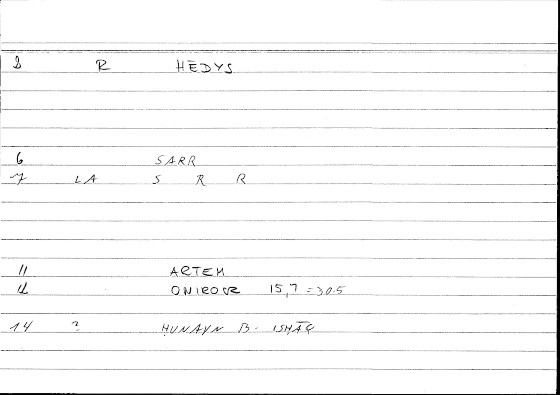 2 R HĒDYS
6 SARR
7 LA S R R
11 ARTEM
12 ONIROCR 15,7 = 305
14 ? ḤUNAYN B. ISḤĀQ